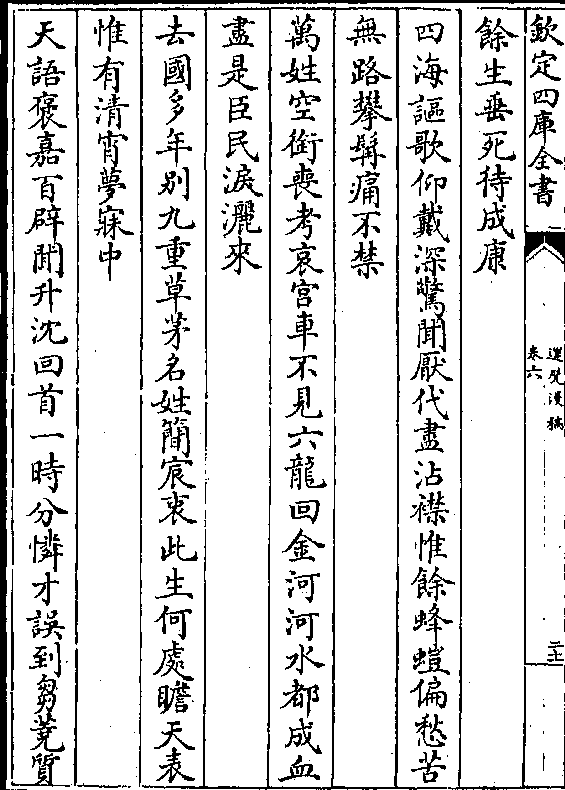 欽定四庫全書
卷六
餘生垂死待成康
四海謳歌仰戴深驚聞厭代盡沾襟惟餘蜂螘偏愁苦
無路攀髯痛不禁
萬姓空銜喪考哀宫車不見六龍回金河河水都成血
盡是臣民淚灑來
去國多年别九重草茅名姓簡宸衷此生何處瞻天表
惟有清宵夢寐中
天語褒嘉百辟聞升沈回首一時分憐才誤到芻蕘質